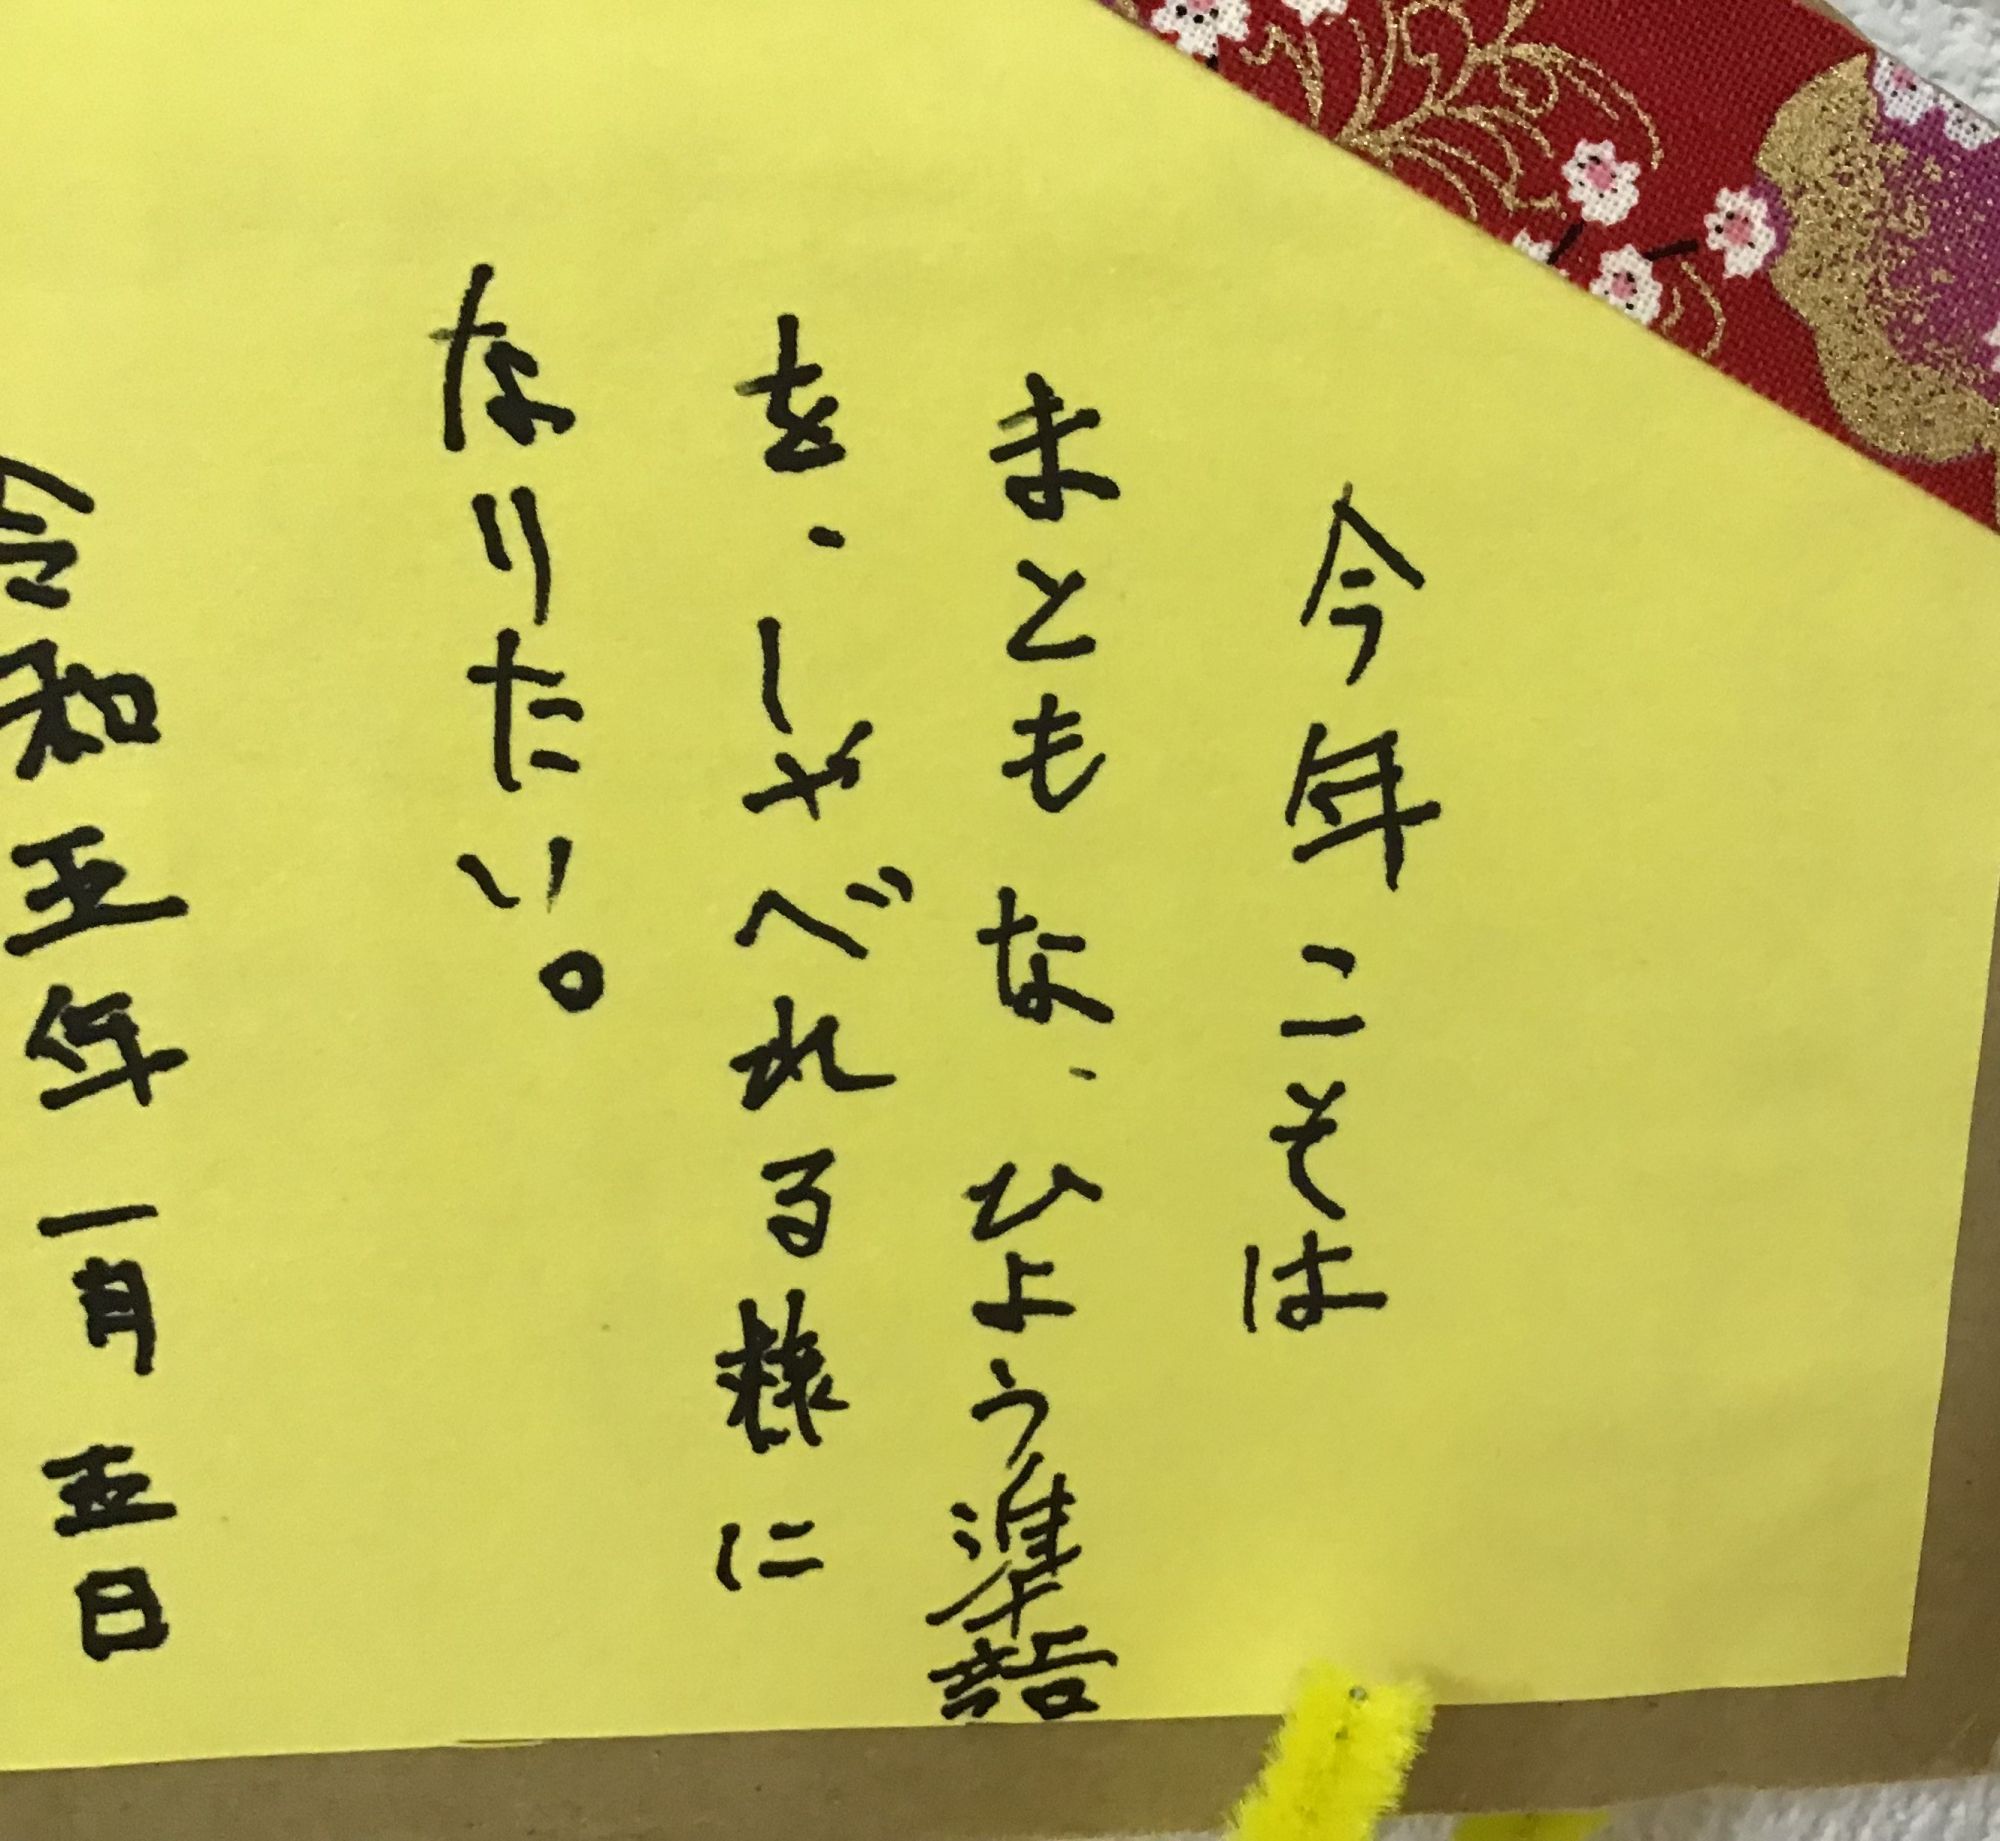 今年こそは
まともな、ひょう準語
を、しゃべれる様に
なりたい。
令和五年一月五日